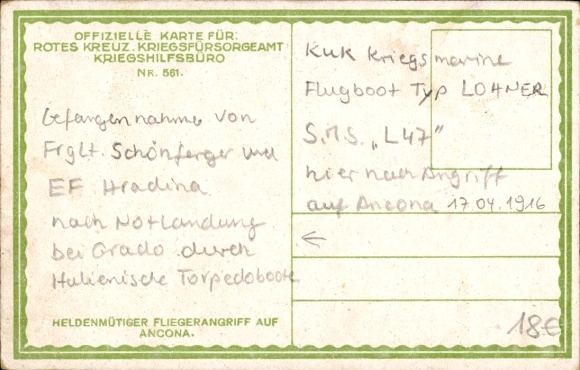 OFFIZIELLE KARTE FÜR:
ROTES KREUZ, KRIEGSFÜRSORGEAMT
KRIEGSHILFSBÜRO
NR. 561.
Gefangennahme von
Frglt. Schönferger und
EF Hradina
nach Notlandung
bei Grado durch
Italienische Torpedoboote
HELDENMÜTIGER FLIEGERANGRIFF AUF
ANCONA.
KuK Kriegsmarine
Flugboot Typ LOHNER
S.M.S. „L47"
hier nach Angriff
auf Ancona 17.04.1916
←
18€